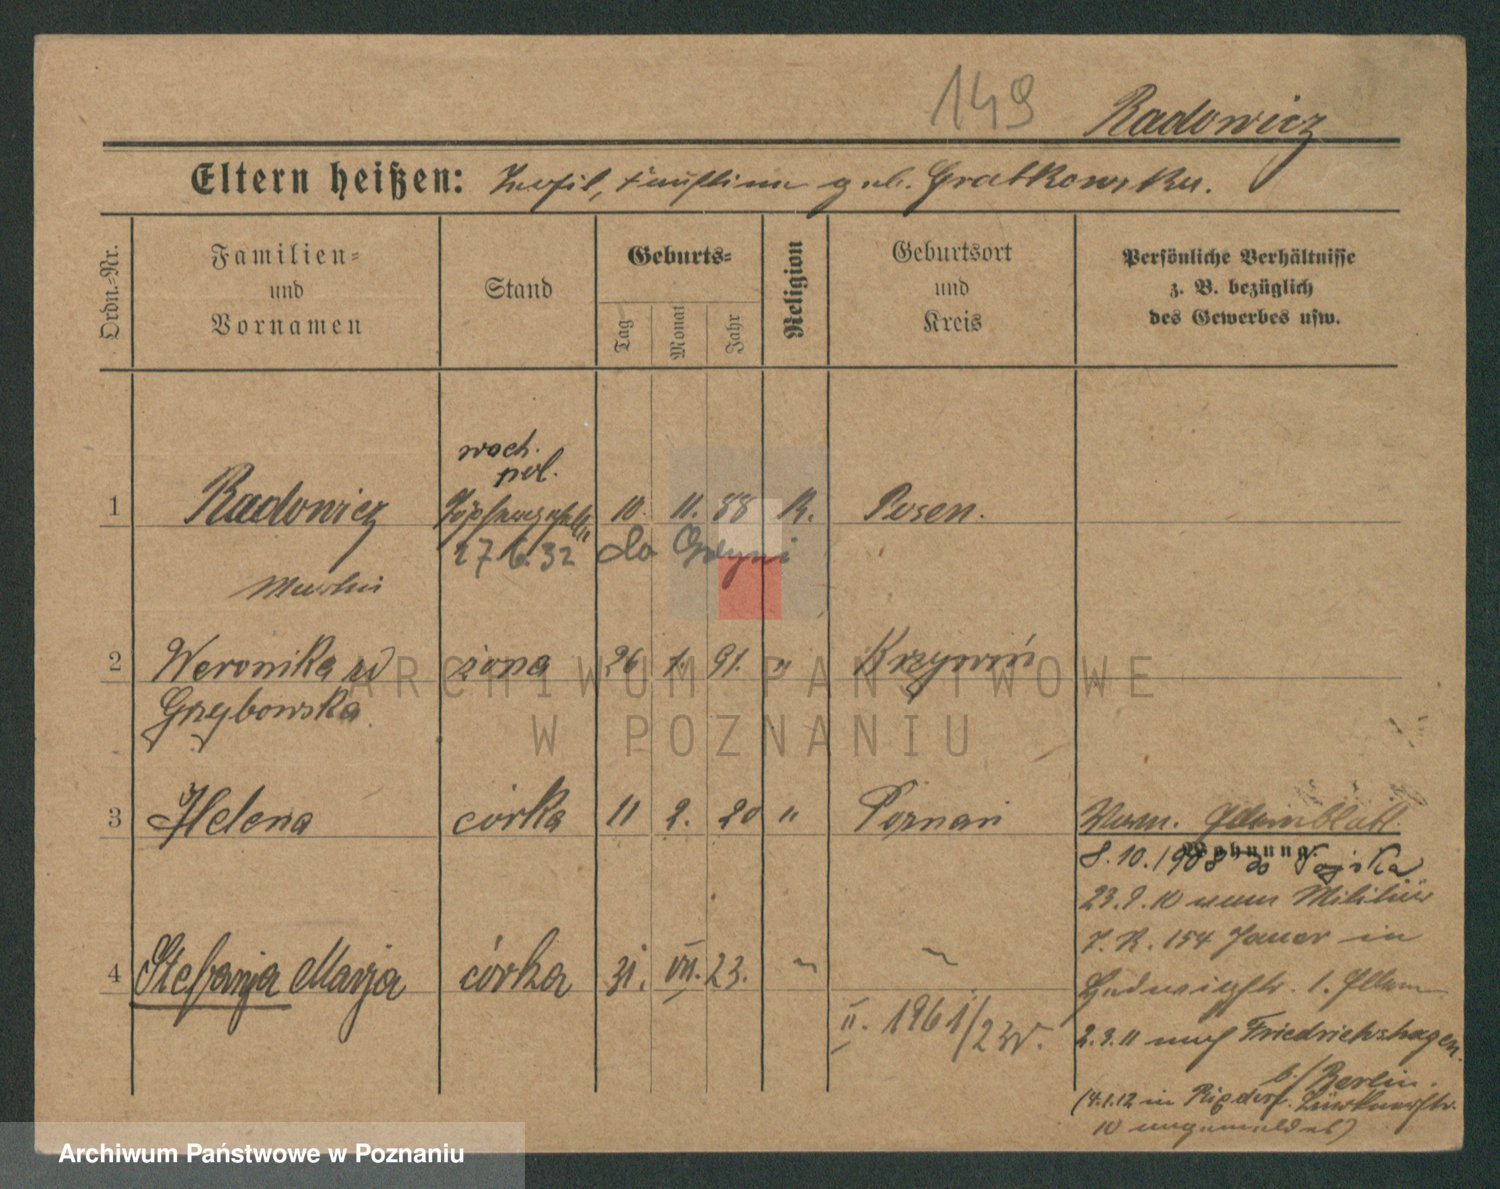 149 Radowicz
Eltern heißen: Teofil, Faustina geb. Gratkowska.
Ordn.-Nr.
Familien-
und
Vornamen
Stand
Geburts-
Tag
Monat
Jahr
Religion
Geburtsort
und
Kreis
Persönliche Verhältnisse
z. B. bezüglich
des Gewerbes usw.
wach.
pol.
1 Radowicz 10. 11. 88 K. Posen.
27 6. 32 do Gdyni
2 Weronika zd żona 26 1. 91. " Krzywiń
Grzybowska
3 Helena córka 11 2. 20 " Poznań
Wohnung:
8. 10. 1908
23. 9. 10 zum Militär
J. R. 154 Jauer in
4 Stefanja Marja córka 31. VII. 23. ~ ~
II. 1961/23r.
2. 9. 11 nach Friedrichshagen.
b./Berlin.
(4.1.12 in
10 angemeldet)
ARCHIWUM PAŃSTWOWE
W POZNANIU
Archiwum Państwowe w Poznaniu